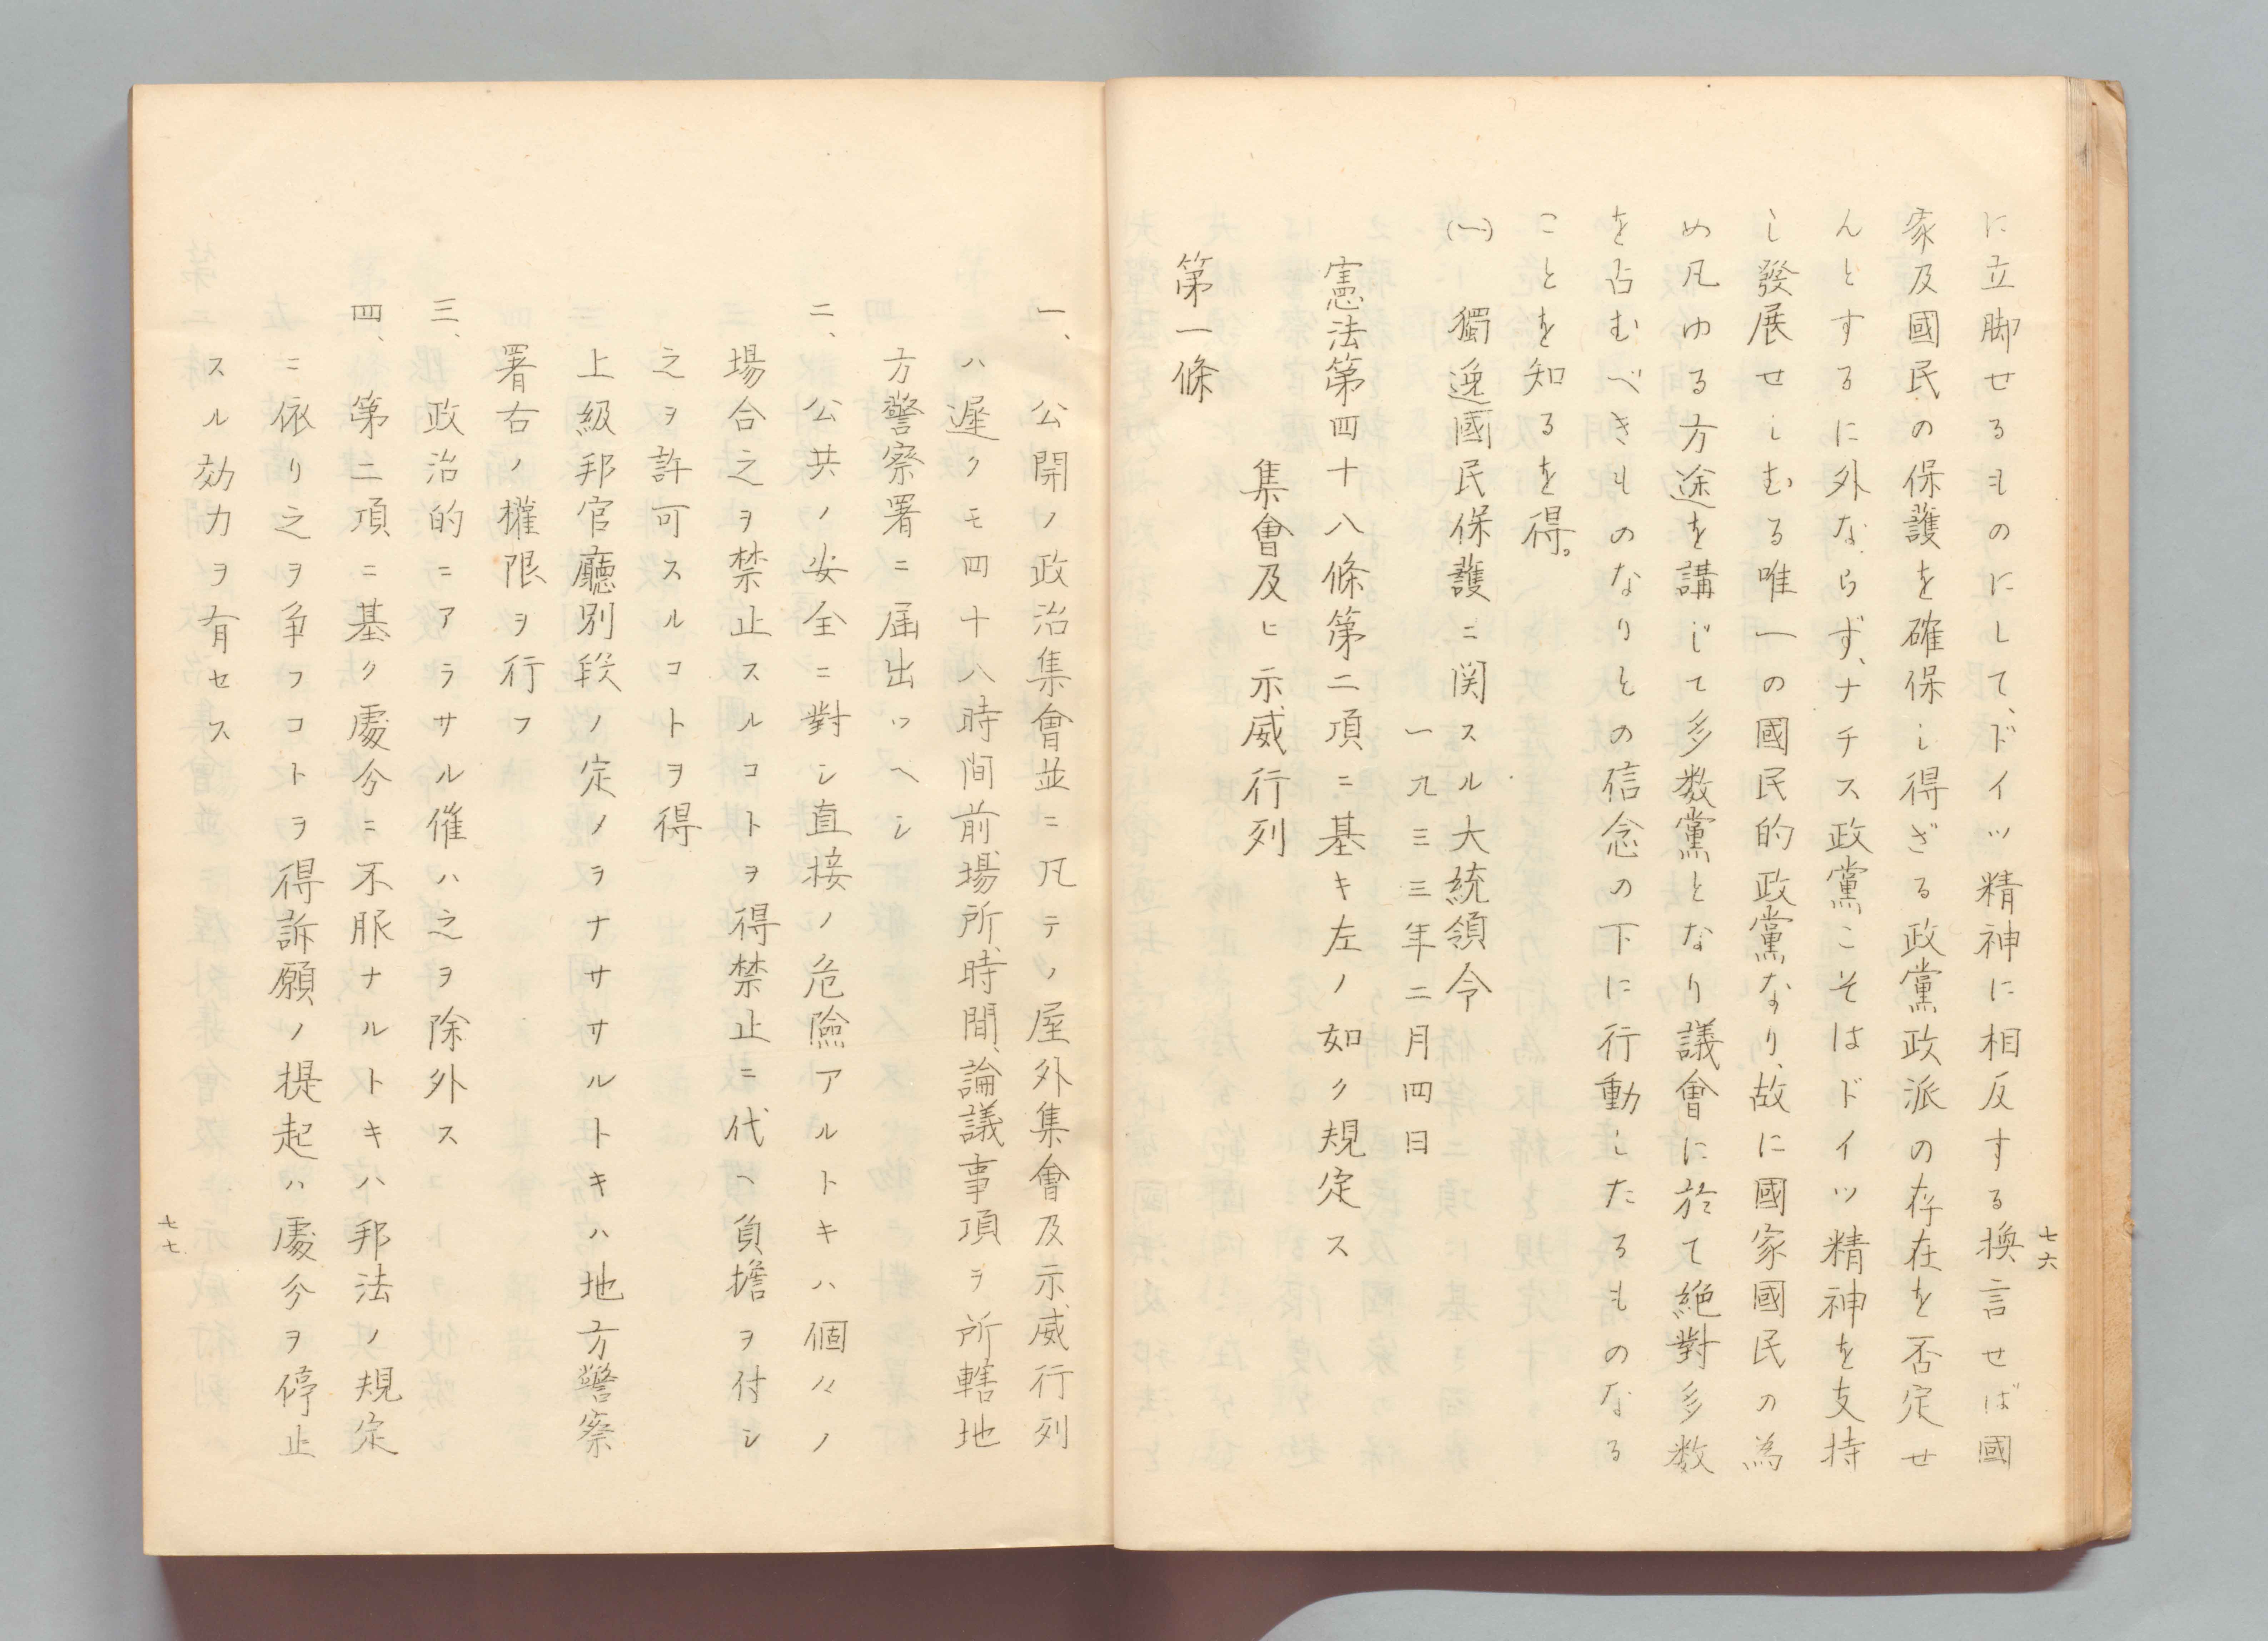 七六
に立脚せるものにして、ドイツ精神に相反する換言せば國
家及國民の保護を確保し得ざる政黨政派の存在を否定せ
んとするに外ならず、ナチス政黨こそはドイツ精神を支持
し發展せしむる唯一の國民的政黨なり、故に國家國民の為
め凡ゆる方途を講じて多数黨となり議會に於て絶對多数
を占むべきものなりとの信念の下に行動したるものなる
ことを知るを得。
(一) 獨逸國民保護ニ関スル大統領令
一九三三年二月四日
憲法第四十八條第二項ニ基キ左ノ如ク規定ス
集會及ヒ示威行列
第一條
一、公開ノ政治集會並ニ凡テノ屋外集會及示威行列
ハ遅クモ四十八時间前場所、時間、論議事項ヲ所轄地
方警察署ニ届出ツヘシ
二、公共ノ安全ニ對シ直接ノ危險アルトキハ個々ノ
場合之ヲ禁止スルコトヲ得禁止ニ代ヘ負擔ヲ付シ
之ヲ許可スルコトヲ得
上級邦官廳別段ノ定ノヲナササルトキハ地方警察
署右ノ權限ヲ行フ
三、政治的ニアラサル催ハ之ヲ除外ス
四、第二項ニ基ク處分ニ不服ナルトキハ邦法ノ規定
ニ依リ之ヲ争フコトヲ得訴願ノ提起ハ處分ヲ停止
スル効力ヲ有セス
七七